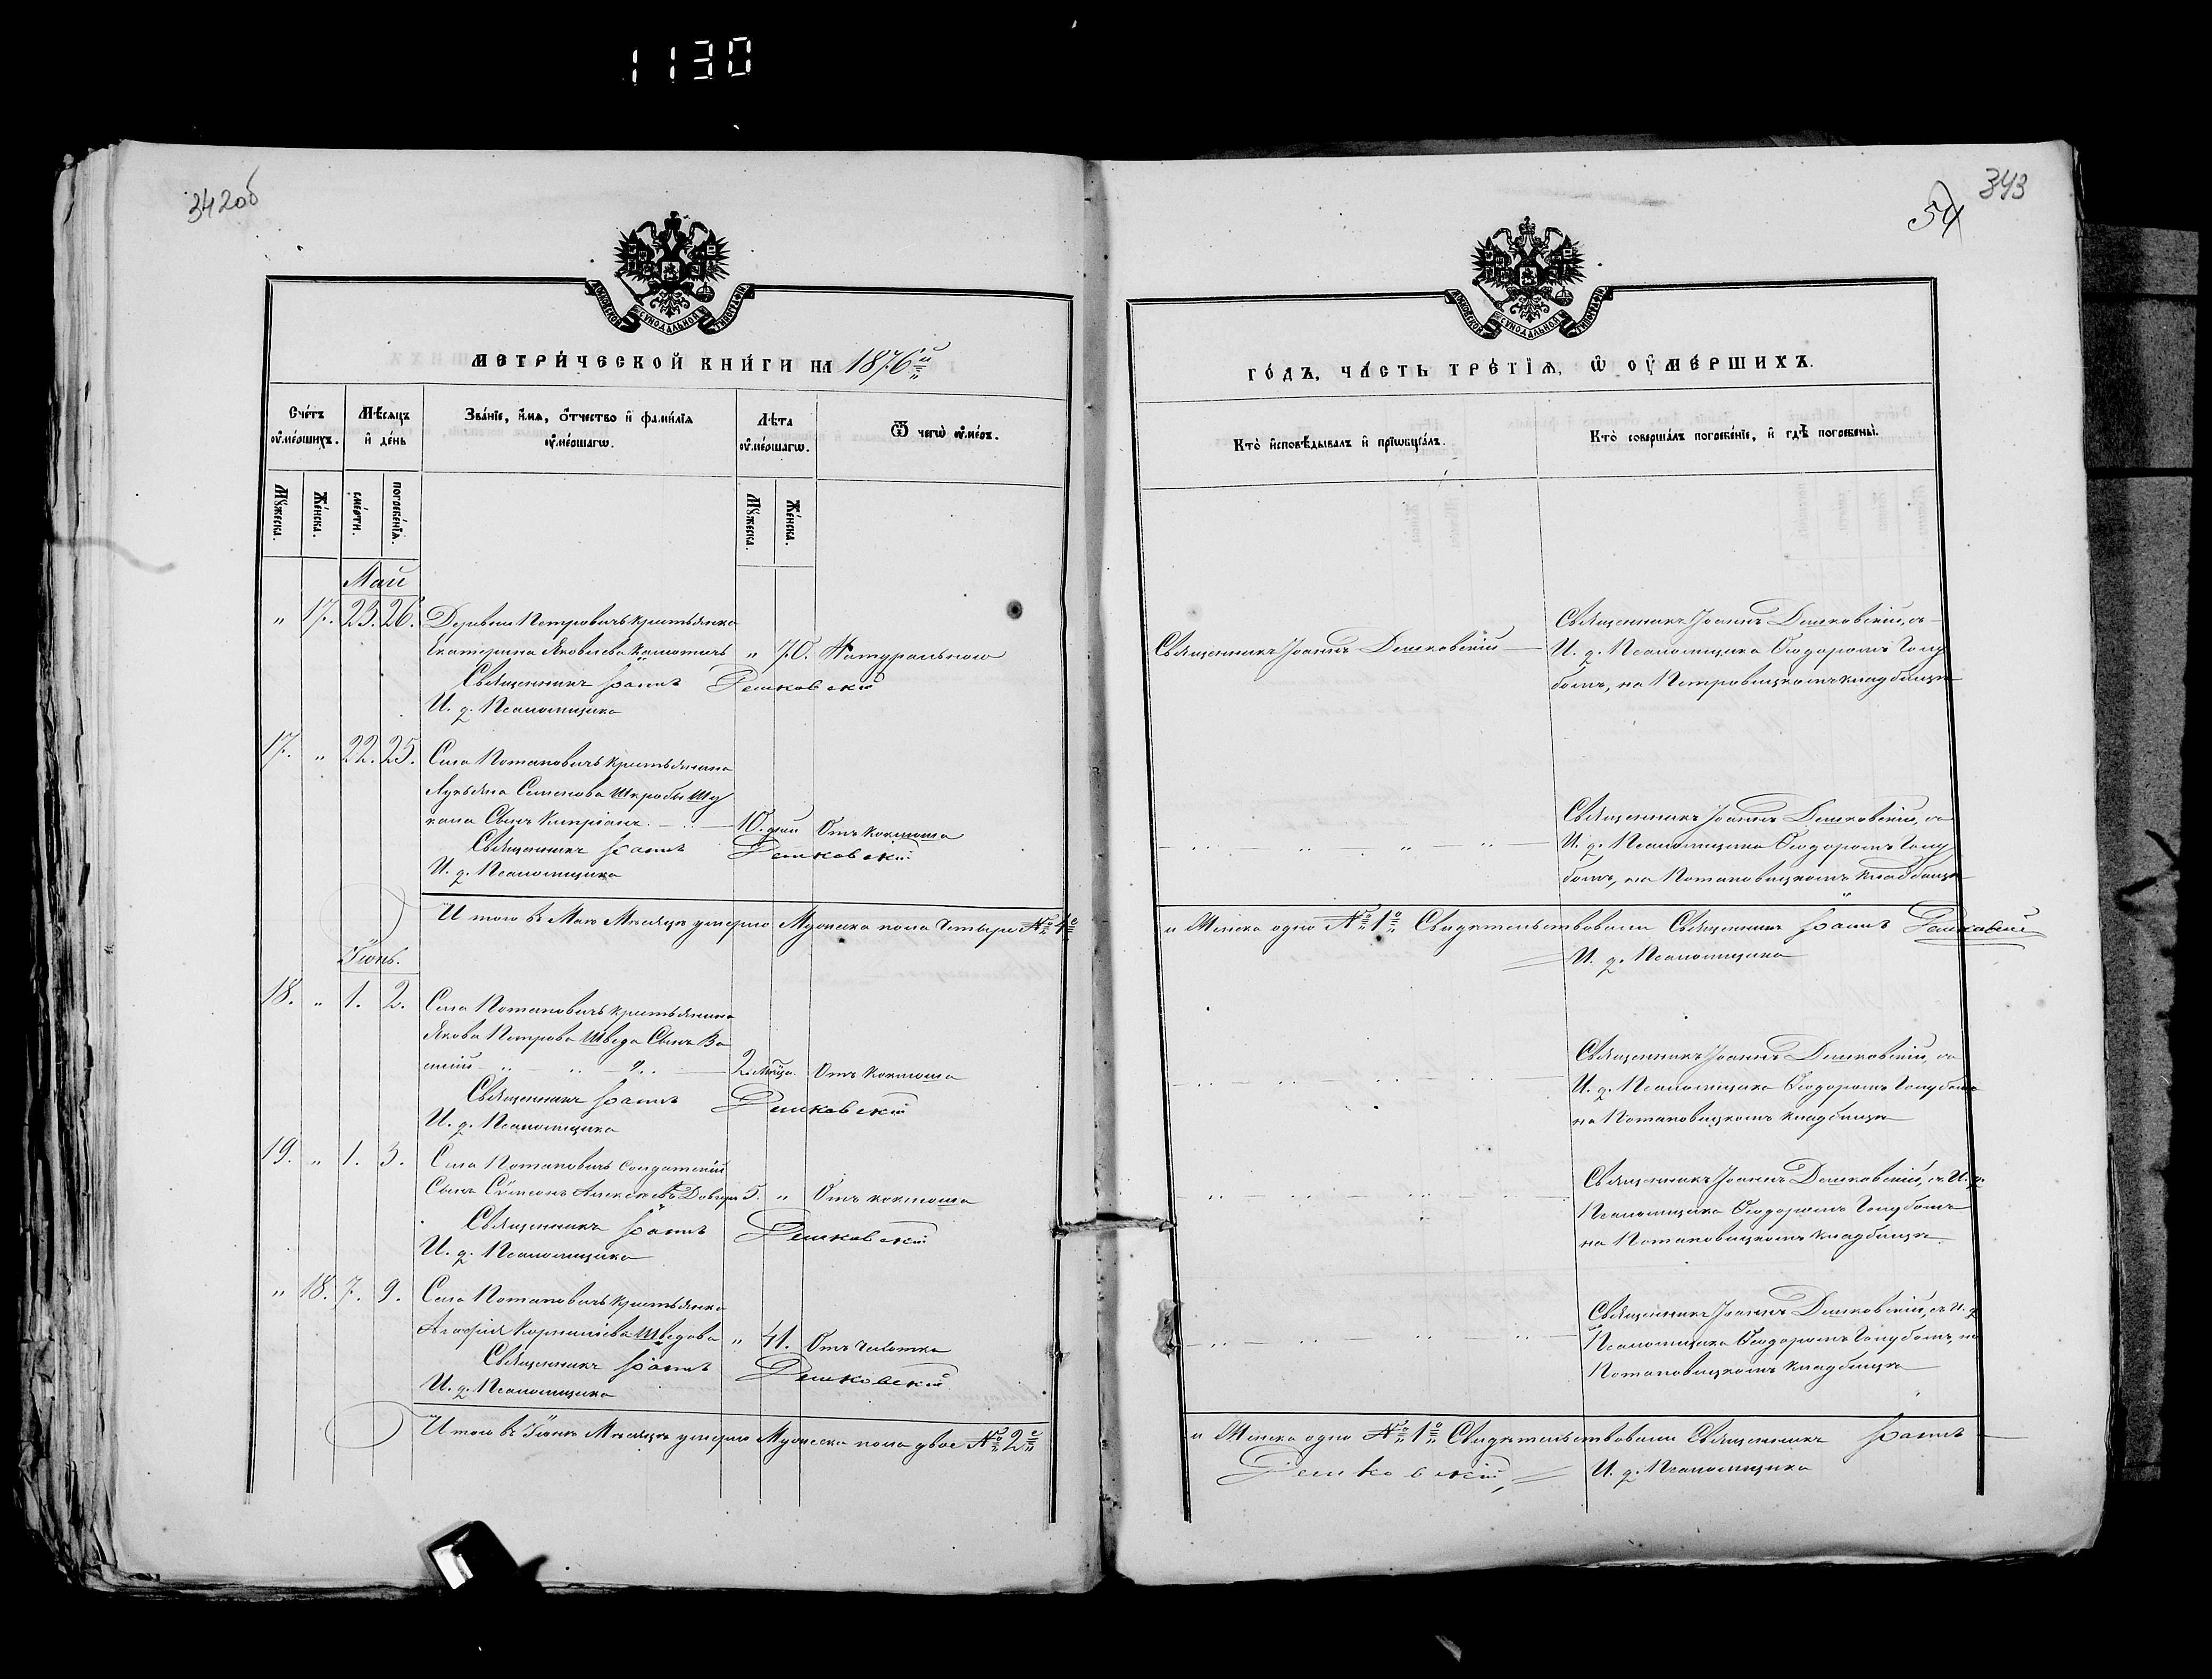 1130
342об
МОСКОВСКОЙ СѴНОДАЛЬНОЙ ТИПОГРАФІИ
МЕТРИ́ЧЕСКОЙ КНИ́ГИ НА 1876й
Сче́тъ ᲂу҆ме́ршихъ.
Мѣ́сѧцъ и҆ де́нь
Зва́нїе, и҆́мѧ, ѻ҆́тчество и҆ фами́лїѧ ᲂу҆ме́ршагѡ.
Лѣ́та ᲂу҆ме́ршагѡ.
Ѿ чегѡ̀ ᲂу҆́меръ.
Мꙋ́жеска.
Же́нска.
сме́рти.
погребе́нїѧ.
Мꙋ́жеска.
Же́нска.
Май
" 17. 23. 26. Деревни Петровичъ крестьянка
Екатерина Яковлева " 70. Натурального
Священникъ Іоаннъ Дешковскій
И. д. Псаломщика
17. " 22. 25. Села Потаповичъ крестьянина
Лукьяна Семенова
сынъ Кипріанъ 10. дней Отъ коклюша
Священникъ Іоаннъ Дешковскій
И. д. Псаломщика
Итого въ Маѣ Мѣсяцѣ умерло Мужеска пола четыре № 4е
Іюнь.
18. " 1. 2. Села Потаповичъ крестьянина
Якова Петрова Шведа сынъ Ва
силій 2. мѣсца. Отъ коклюша
Священникъ Іоаннъ Дешковскій
И. д. Псаломщика
19. " 1. 3. Села Потаповичъ солдатскій
сынъ Сѵмеонъ Алексѣевъ 5. " Отъ коклюша
Священникъ Іоаннъ Дешковскій
И. д. Псаломщика
" 18. 7. 9. Села Потаповичъ крестьянка
Агафія Корнилiева Шведова " 41. Отъ чахотки
Священникъ Іоаннъ Дешковскій
И. д. Псаломщика
Итого въ Іюнѣ Мѣсяцѣ умерло Мужеска пола двое № 2е
343
54
МОСКОВСКОЙ СѴНОДАЛЬНОЙ ТИПОГРАФІИ
ГО́ДЪ, ЧА́СТЬ ТРЕ́ТЇѦ, Ѡ҆ ОУ҆МЕ́РШИХЪ.
Кто̀ и҆сповѣ́дывалъ и҆ прїѡбща́лъ.
Кто̀ соверша́лъ погребе́нїе, и҆ гдѣ̀ погребены̀.
Священникъ Іоаннъ Дешковскій
Священникъ Іоаннъ Дешковскій, съ
И. д. Псаломщика Ѳеодоромъ Голу
бомъ, на Петровицкомъ кладбищѣ
Священникъ Іоаннъ Дешковскій, съ
И. д. Псаломщика Ѳеодоромъ Голу
бомъ, на Потаповицкомъ кладбищѣ
и Женска одно № 1о Свидѣтельствовали Священникъ Іоаннъ Дешковскій
И. д. Псаломщика
Священникъ Іоаннъ Дешковскій, съ
И. д. Псаломщика Ѳеодоромъ Голубомъ
на Потаповицкомъ кладбищѣ
Священникъ Іоаннъ Дешковскій, съ И. д.
Псаломщика Ѳеодоромъ Голубомъ
на Потаповицкомъ кладбищѣ
Священникъ Іоаннъ Дешковскій, съ И. д.
Псаломщика Ѳеодоромъ Голубомъ, на
Потаповицкомъ кладбищѣ
и Женска одно № 1о Свидѣтельствовали Священникъ Іоаннъ
Дешковскій, И. д. Псаломщика